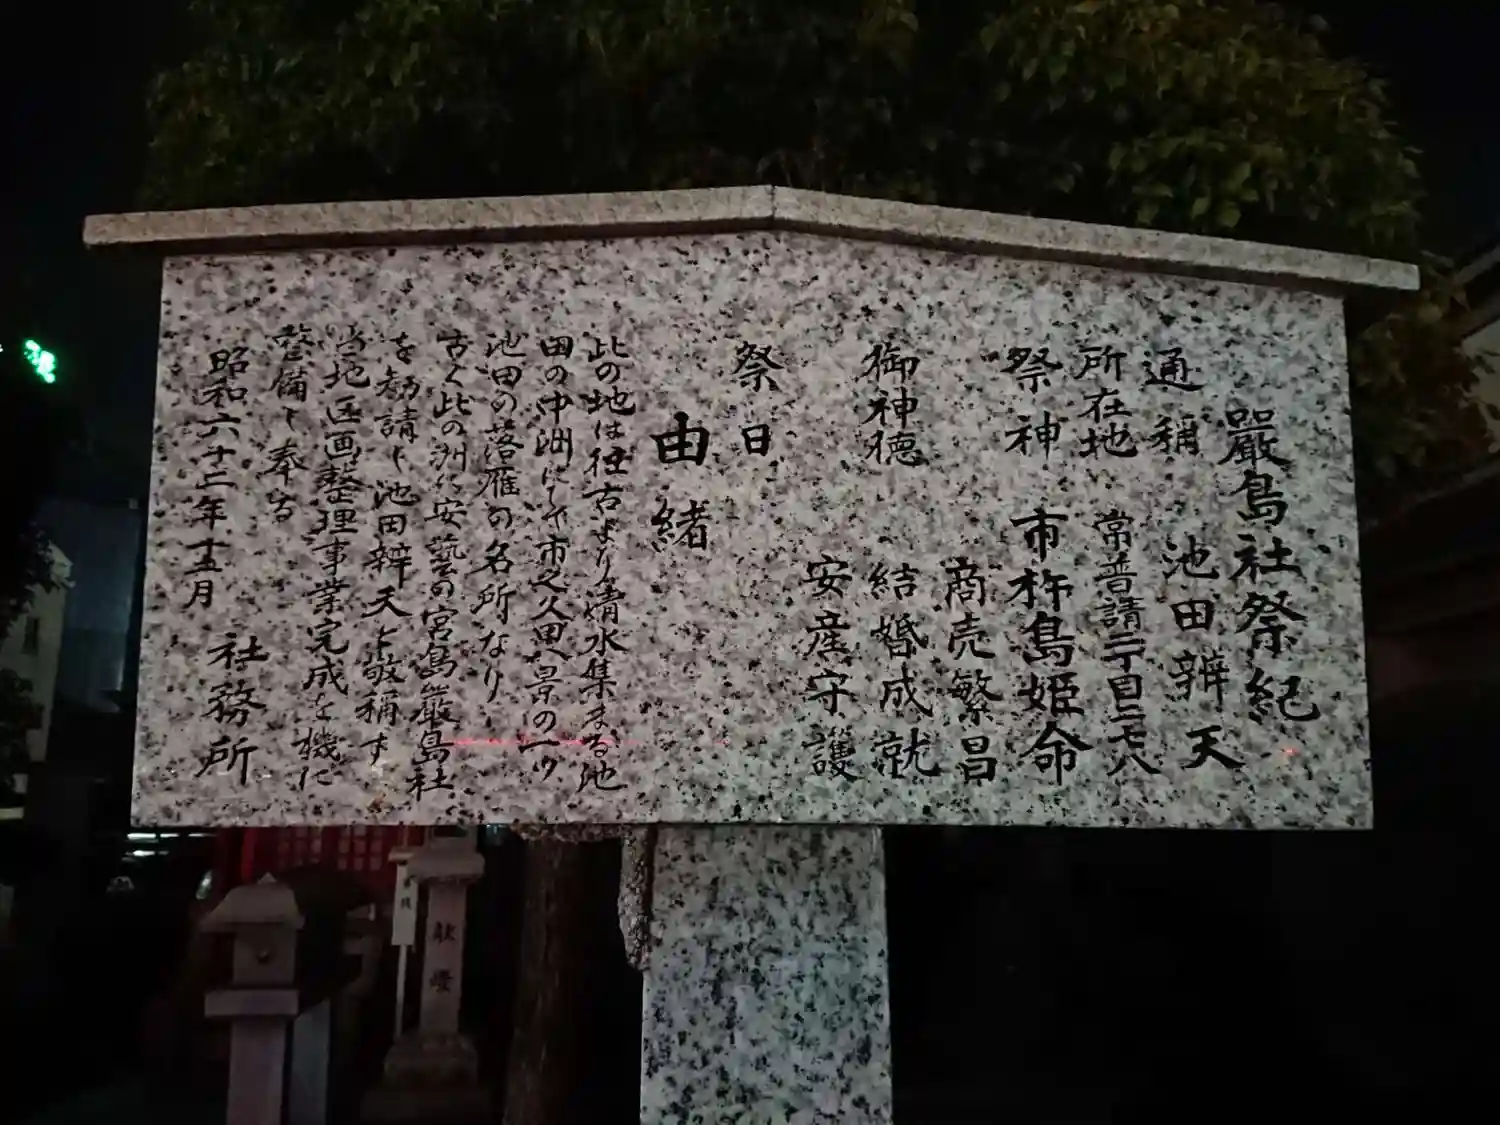 嚴島社祭紀
通稱 池田辨天
所在地 常普請二丁目二七八
祭神 市杵島姫命
商売繁昌
御神徳 結婚成就
安産守護
祭日
由緒
此の地は往古より清水集まる池
田の中洲にて市之久田八景の一ツ
池田の落雁の名所なり
古く此の洲に安藝の宮島嚴島社
を勧請し池田辨天と敬稱す
当地区画整理事業完成を機に
整備し奉る
昭和六十三年十二月 社務所
献燈